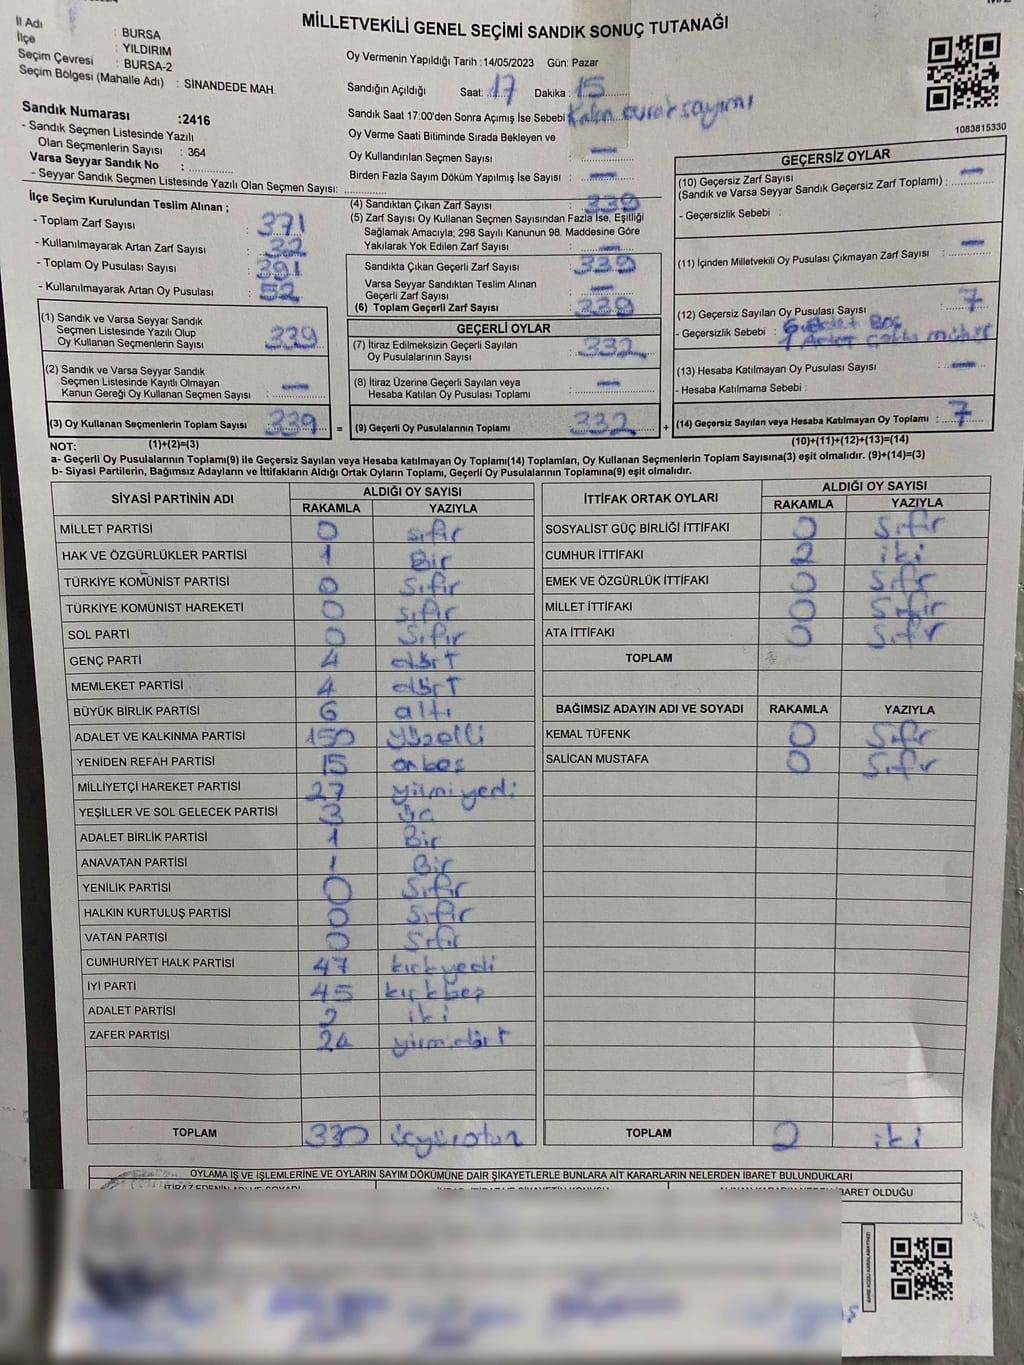 MİLLETVEKİLİ GENEL SEÇİMİ SANDIK SONUÇ TUTANAĞI
İl Adı : BURSA
İlçe : YILDIRIM
Seçim Çevresi : BURSA-2
Seçim Bölgesi (Mahalle Adı) : SİNANDEDE MAH.
Sandık Numarası :2416
- Sandık Seçmen Listesinde Yazılı
Olan Seçmenlerin Sayısı : 364
Varsa Seyyar Sandık No :
- Seyyar Sandık Seçmen Listesinde Yazılı Olan Seçmen Sayısı:
Oy Vermenin Yapıldığı Tarih :14/05/2023 Gün: Pazar
Sandığın Açıldığı Saat: 17 Dakika : 15
Sandık Saat 17:00'den Sonra Açımış İse Sebebi : Kalan evrak sayımı
Oy Verme Saati Bitiminde Sırada Bekleyen ve
Oy Kullandırılan Seçmen Sayısı : —
Birden Fazla Sayım Döküm Yapılmış İse Sayısı : —
1083815330
İlçe Seçim Kurulundan Teslim Alınan ;
- Toplam Zarf Sayısı : 371
- Kullanılmayarak Artan Zarf Sayısı : 32
- Toplam Oy Pusulası Sayısı : 391
- Kullanılmayarak Artan Oy Pusulası : 52
(1) Sandık ve Varsa Seyyar Sandık
Seçmen Listesinde Yazılı Olup
Oy Kullanan Seçmenlerin Sayısı : 339
(2) Sandık ve Varsa Seyyar Sandık
Seçmen Listesinde Kayıtlı Olmayan
Kanun Gereği Oy Kullanan Seçmen Sayısı : —
(3) Oy Kullanan Seçmenlerin Toplam Sayısı : 339
(4) Sandıktan Çıkan Zarf Sayısı : 339
(5) Zarf Sayısı Oy Kullanan Seçmen Sayısından Fazla İse, Eşitliği
Sağlamak Amacıyla; 298 Sayılı Kanunun 98. Maddesine Göre
Yakılarak Yok Edilen Zarf Sayısı : —
Sandıkta Çıkan Geçerli Zarf Sayısı : 339
Varsa Seyyar Sandıktan Teslim Alınan
Geçerli Zarf Sayısı : —
(6) Toplam Geçerli Zarf Sayısı : 339
GEÇERLİ OYLAR
(7) İtiraz Edilmeksizin Geçerli Sayılan
Oy Pusulalarının Sayısı : 332
(8) İtiraz Üzerine Geçerli Sayılan veya
Hesaba Katılan Oy Pusulaları Toplamı : —
= (9) Geçerli Oy Pusulalarının Toplamı : 332
GEÇERSİZ OYLAR
(10) Geçersiz Zarf Sayısı
(Sandık ve Varsa Seyyar Sandık Geçersiz Zarf Toplamı) : —
- Geçersizlik Sebebi :
(11) İçinden Milletvekili Oy Pusulası Çıkmayan Zarf Sayısı : —
(12) Geçersiz Sayılan Oy Pusulası Sayısı : 7
- Geçersizlik Sebebi : 6 Adet Boş
1 Adet çoklu mühür
(13) Hesaba Katılmayan Oy Pusulası Sayısı : —
- Hesaba Katılmama Sebebi :
+ (14) Geçersiz Sayılan veya Hesaba Katılmayan Oy Toplamı : 7
NOT: (1)+(2)=(3) (10)+(11)+(12)+(13)=(14)
a- Geçerli Oy Pusulalarının Toplamı(9) ile Geçersiz Sayılan veya Hesaba katılmayan Oy Toplamı(14) Toplamları, Oy Kullanan Seçmenlerin Toplam Sayısına(3) eşit olmalıdır. (9)+(14)=(3)
b- Siyasi Partilerin, Bağımsız Adayların ve İttifakların Aldığı Ortak Oyların Toplamı, Geçerli Oy Pusulalarının Toplamına(9) eşit olmalıdır.
SİYASİ PARTİNİN ADI ALDIĞI OY SAYISI
RAKAMLA YAZIYLA
MİLLET PARTİSİ 0 sıfır
HAK VE ÖZGÜRLÜKLER PARTİSİ 1 Bir
TÜRKİYE KOMÜNİST PARTİSİ 0 sıfır
TÜRKİYE KOMÜNİST HAREKETİ 0 sıfır
SOL PARTİ 0 sıfır
GENÇ PARTİ 4 dört
MEMLEKET PARTİSİ 4 dört
BÜYÜK BİRLİK PARTİSİ 6 altı
ADALET VE KALKINMA PARTİSİ 150 yüzelli
YENİDEN REFAH PARTİSİ 15 onbeş
MİLLİYETÇİ HAREKET PARTİSİ 27 yilmiyedi
YEŞİLLER VE SOL GELECEK PARTİSİ 3 üç
ADALET BİRLİK PARTİSİ 1 Bir
ANAVATAN PARTİSİ 1 Bir
YENİLİK PARTİSİ 0 sıfır
HALKIN KURTULUŞ PARTİSİ 0 sıfır
VATAN PARTİSİ 0 sıfır
CUMHURİYET HALK PARTİSİ 47 kırkyedi
İYİ PARTİ 45 kırkbeş
ADALET PARTİSİ 2 iki
ZAFER PARTİSİ 24 yirmidört
TOPLAM 330 üçyüzotuz
İTTİFAK ORTAK OYLARI ALDIĞI OY SAYISI
RAKAMLA YAZIYLA
SOSYALİST GÜÇ BİRLİĞİ İTTİFAKI 0 sıfır
CUMHUR İTTİFAKI 2 iki
EMEK VE ÖZGÜRLÜK İTTİFAKI 0 sıfır
MİLLET İTTİFAKI 0 sıfır
ATA İTTİFAKI 0 sıfır
TOPLAM
BAĞIMSIZ ADAYIN ADI VE SOYADI RAKAMLA YAZIYLA
KEMAL TÜFENK 0 sıfır
SALİCAN MUSTAFA 0 sıfır
TOPLAM 2 iki
OYLAMA İŞ VE İŞLEMLERİNE VE OYLARIN SAYIM DÖKÜMÜNE DAİR ŞİKAYETLERLE BUNLARA AİT KARARLARIN NELERDEN İBARET BULUNDUKLARI
İTİRAZ EDENİN ADI VE SOYADI
İBARET OLDUĞU